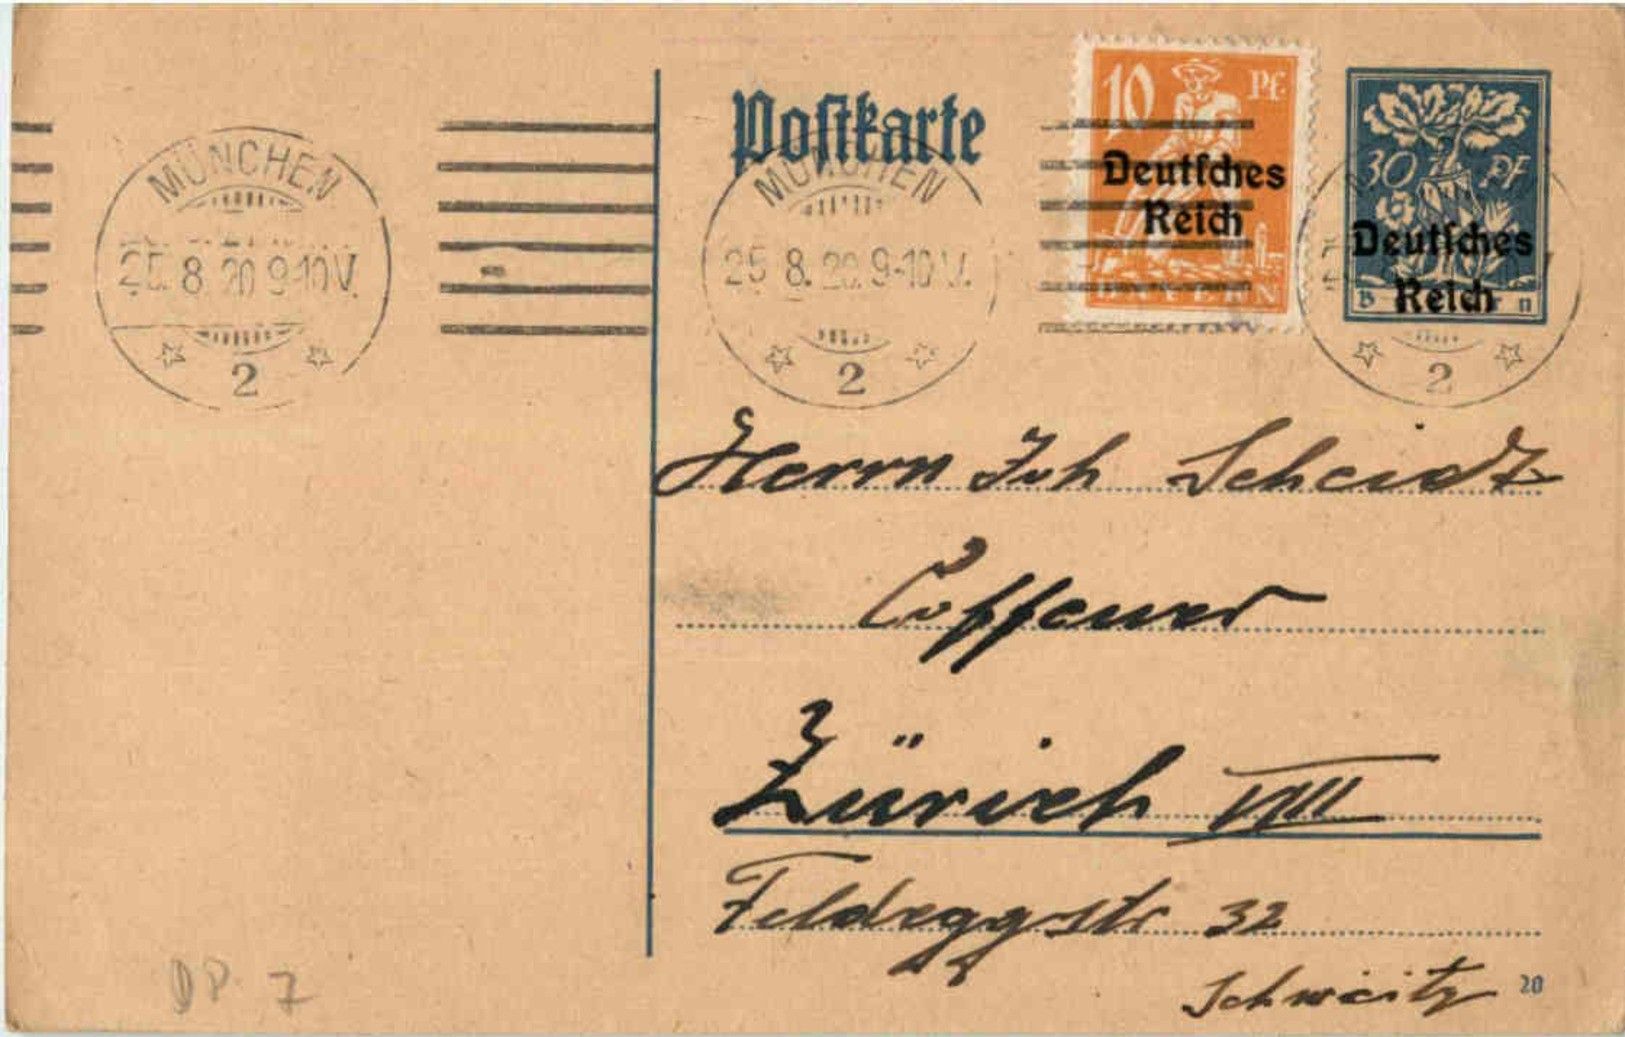 Postkarte
10 Pf.
Deutsches
Reich
BAYERN
30 Pf
Deutsches
Reich
MÜNCHEN
25.8.20 9-10V.
2
MÜNCHEN
25.8.20 9-10V.
2
2
Herrn Joh Scheidt
Coiffeur
Zürich VIII
Feldeggstr 32
Schweitz
20
DP. 7